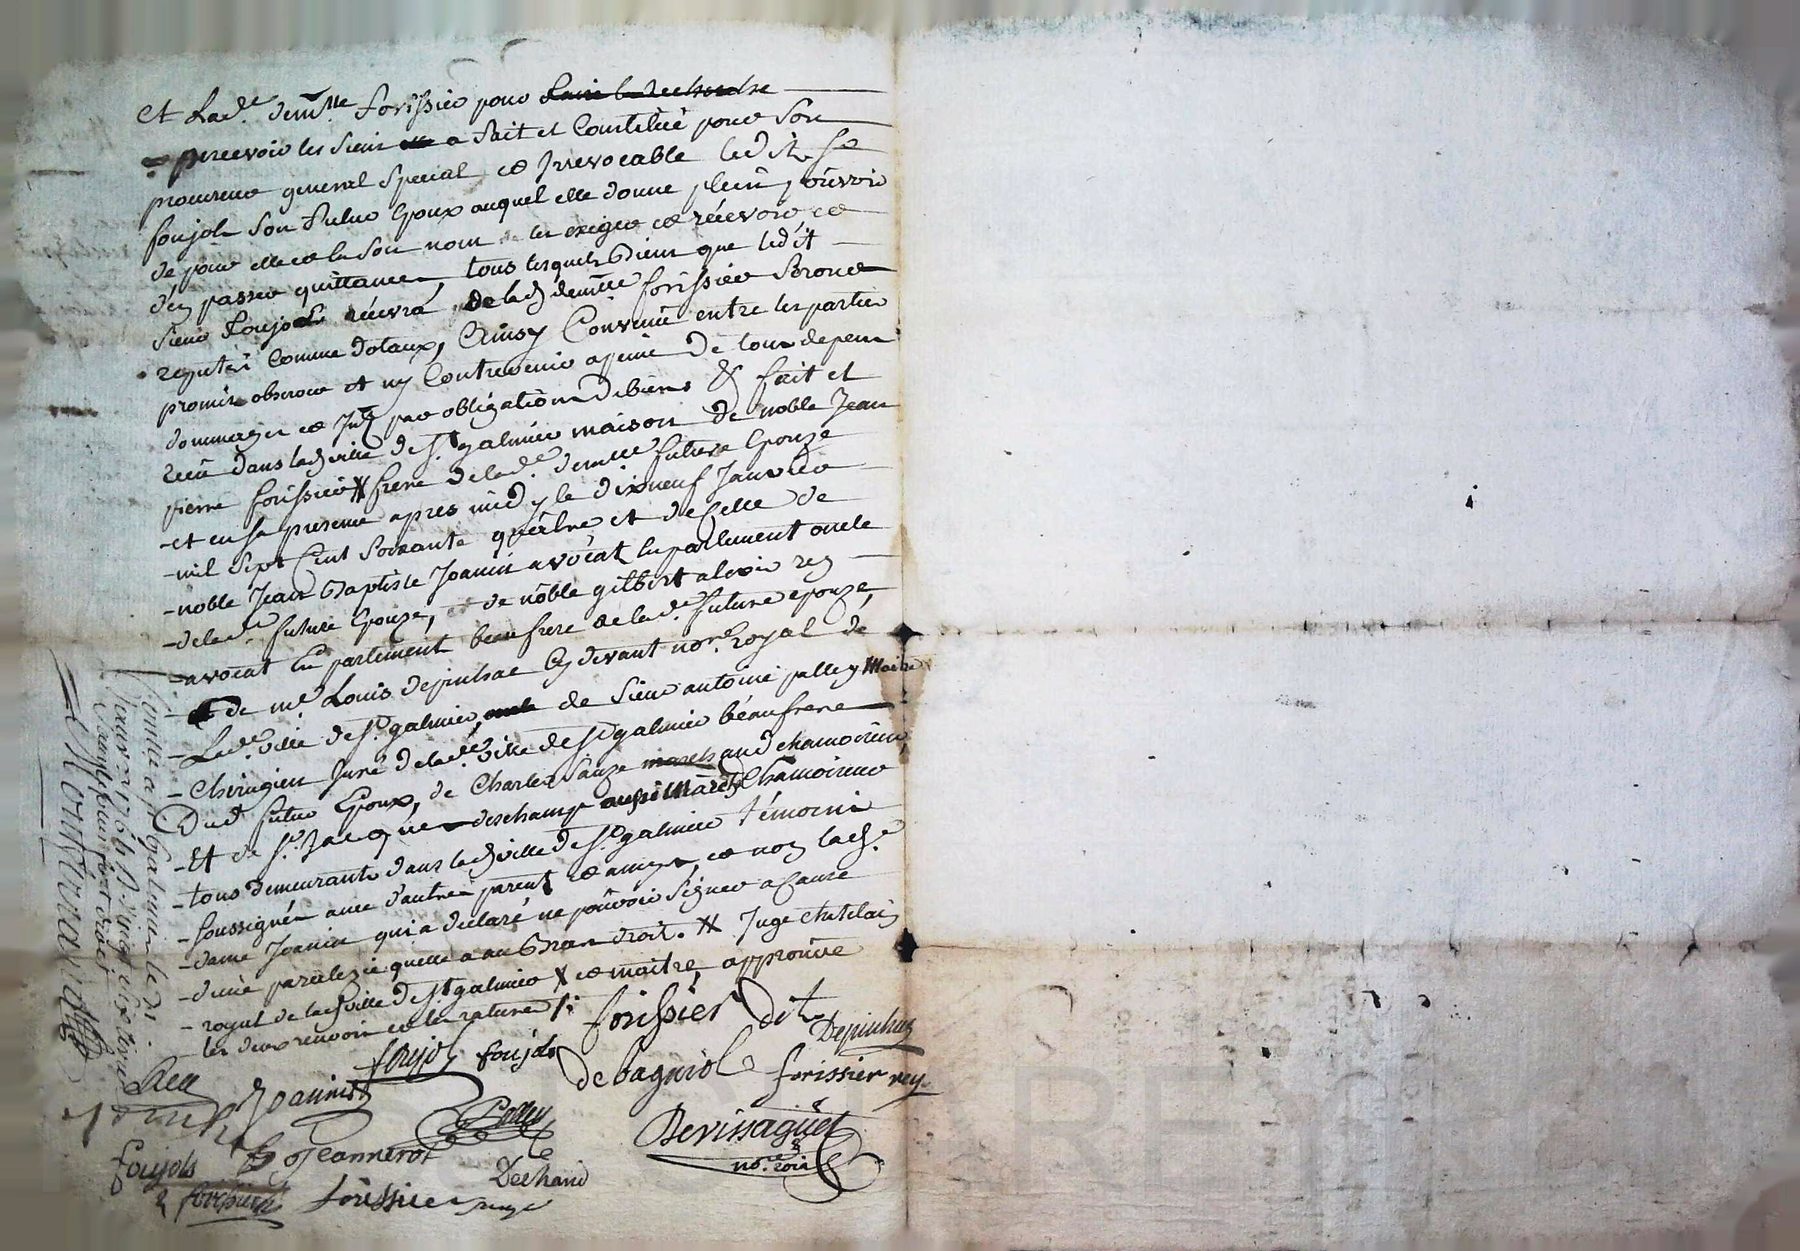 et Lad.e dem.lle forissier pour faire la recherche
percevoir les siens a fait et Constitué pour Son
procureur general Special et Irrevocable ledit Sr
foujols Son futur Epoux auquel elle donne plein pouvoir
de pour elle et en Son nom les exiger et récevoir et
d'en passer quittance, tous lesquels biens que ledit
Sieur foujols récevra de lad demlle forissier Seront
reputés Comme dotaux, Ainsy Convenu entre les parties
promis observer et ny Contrevenir a peine De tous depens
dommages et Int par obligation De biens & fait et
reçu dans lad ville de St galmier maison de noble Jean
pierre forissier # frere de lad.e demlle future Epouze
et en Sa presence apres midy le dixneuf Janvier
mil Sept Cent Soixante quatre et de Celle de
noble Jean Baptiste Joanin avocat En parlement oncle
de la d.e future Epouze, de noble gilbert alexis rey
avocat En parlement beaufrere de la d.e future epouze,
de me Louis depinhac Cy devant no.re royal de
Lad.e ville de St galmier, de Sieur antoine palley Maitre
Chirugien Juré de lad.e ville de St galmier béaufrere
Dud futur Epoux, de Charles Sauze marchand chamoireur,
Et de Sr. Jacques deschamps aussi March Chamoireur
tous demeurants dans lad ville de St galmier témoins
Soussignés avec d'autres parents et amys, et non lad.e
dame Joanin qui a declaré ne pouvoir Signer a Cause
d'une paralezie quelle a au bras droit. # Juge chatelain
royal de lad ville de St galmier X et maitre, approuvé
les deux renvois et les ratures /.
forissier dit
Depinhac
foujols foujols
de bagniols
forissier rey
Rey
Joannin
Palley
Devissaguet
no.re roial
Jeannerot
foujols
Dechand
forissier
forissier
Controllé a St Galmier le dix